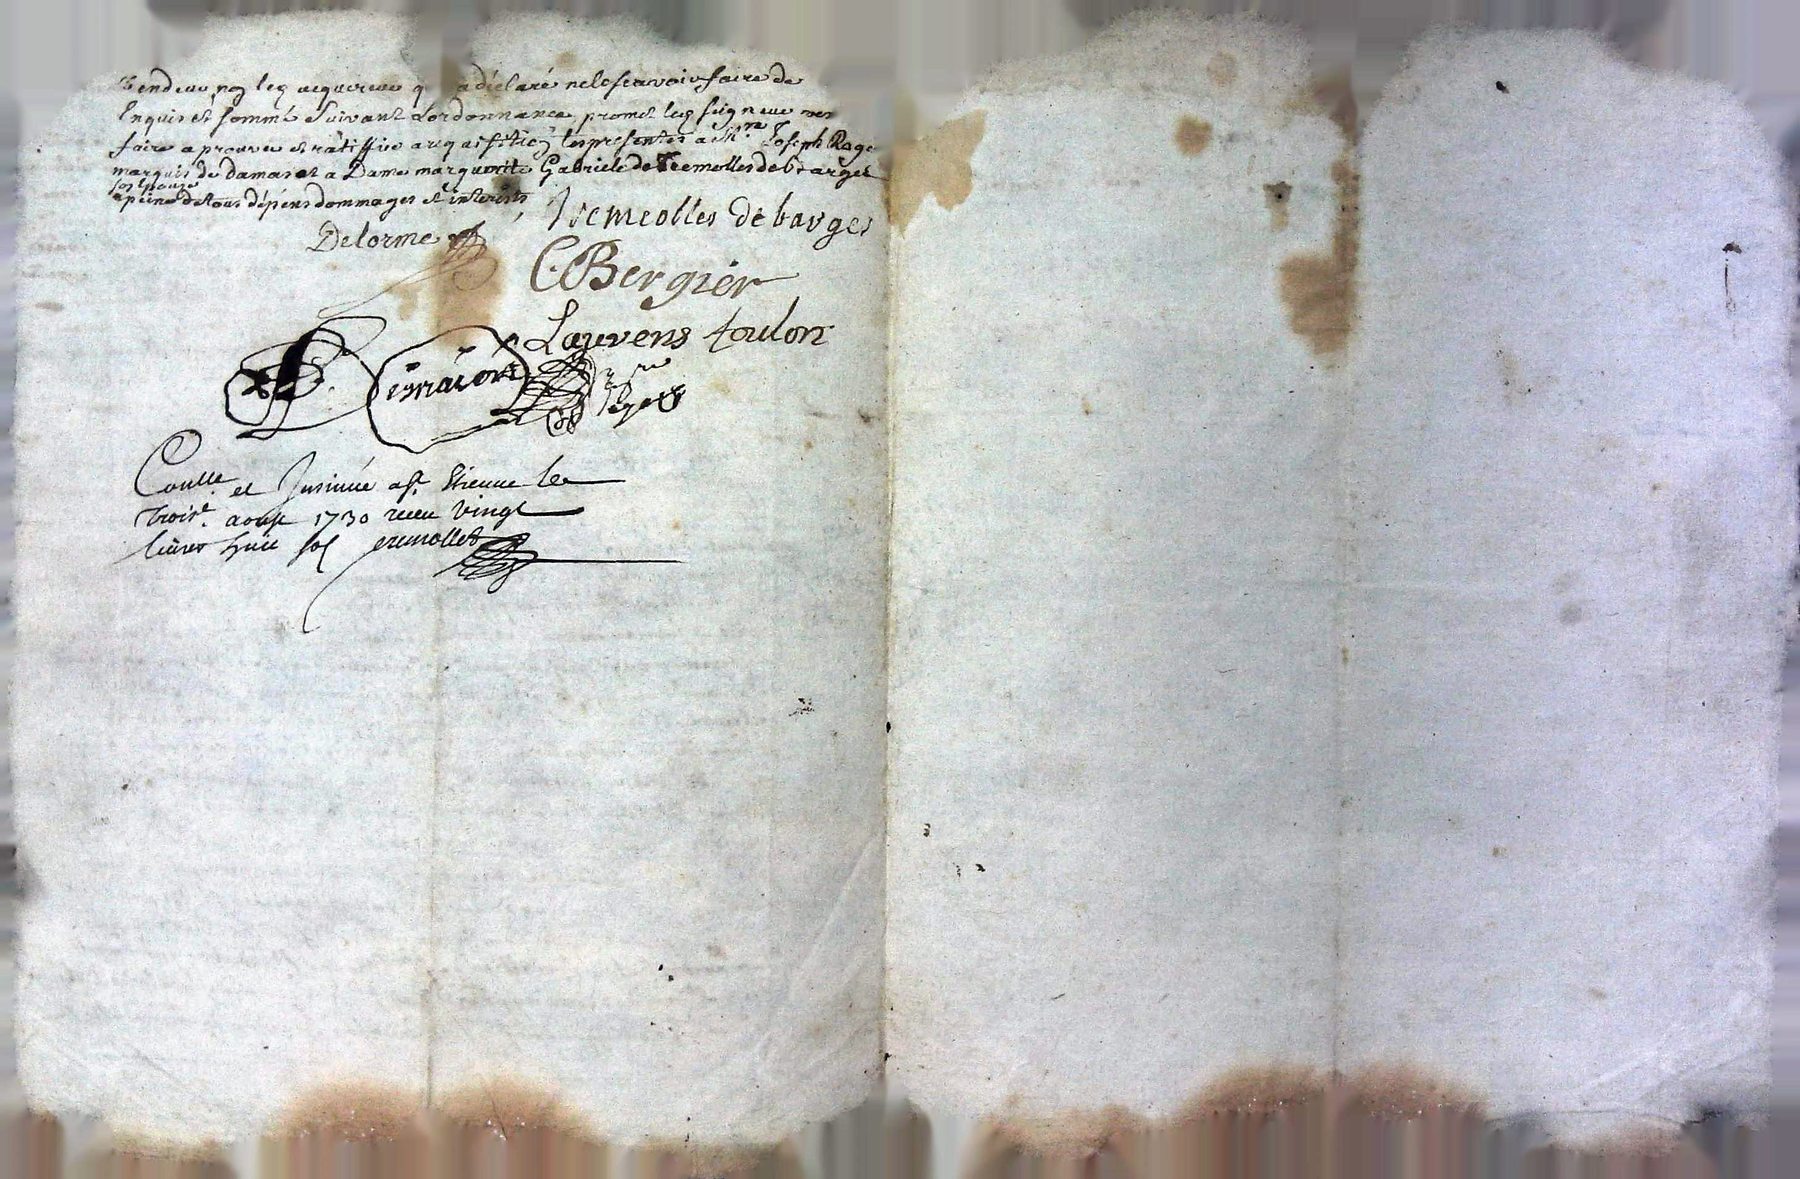 Vendeur non led acquereur q a declaré ne le scavoir faire de
Enquis et sommé suivant Lordonnance, promet led seigneur
faire aprouver et ratiffier les presentes a Mre Joseph
marquis de Damas et a Dame margueritte Gabriele de Tremeolles de barges
son Epouse
a peine de tous dépens dommages et interests
Tremeolles de barges
Delorme
C. Bergier
Laurens toulon
Coullé et Insinué a St Etienne le
Troise aoust 1730 receu vingt
livres huit sol